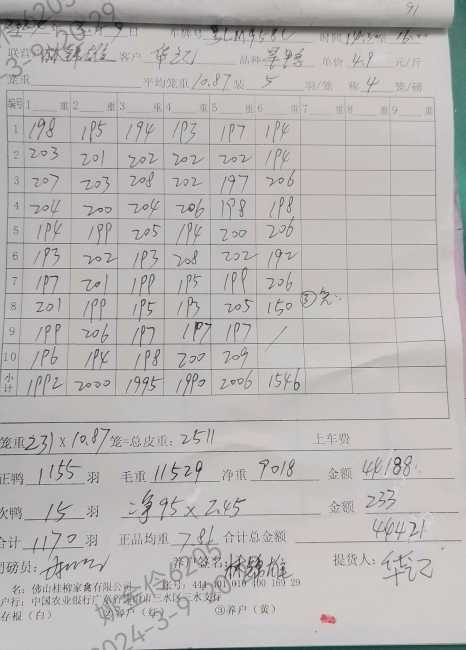 91
客户 品种 单价 4.9 元/斤
笼重 平均笼重 10.87 装 5 羽/笼 板 4 笼/磅
编号 1 重 2 重 3 重 4 重 5 重 6 重 7 重 8 重 9 重
1 198 195 194 193 197 194
2 203 201 202 202 202 194
3 207 203 208 202 197 206
4 204 200 204 206 198 198
5 194 199 205 194 200 206
6 193 202 193 208 202 192
7 197 201 199 195 199 206
8 201 199 195 193 205 150 ③
9 199 206 197 197 197 /
10 196 194 198 200 209
小计 1992 2000 1995 1990 2006 1546
笼重 231 × 10.87 笼=总皮重: 2511 上车费
正鸭 1155 羽 毛重 11529 净重 9018 金额 44188
次鸭 15 羽 净95 × 2.45 金额 233
合计 1170 羽 正品均重 7.81 合计总金额 44421
司磅员: 养户签名: 林锦雄 提货人:
名: 佛山桂柳家禽有限公司
户行: 中国农业银行
存根（白） ③养户（黄）